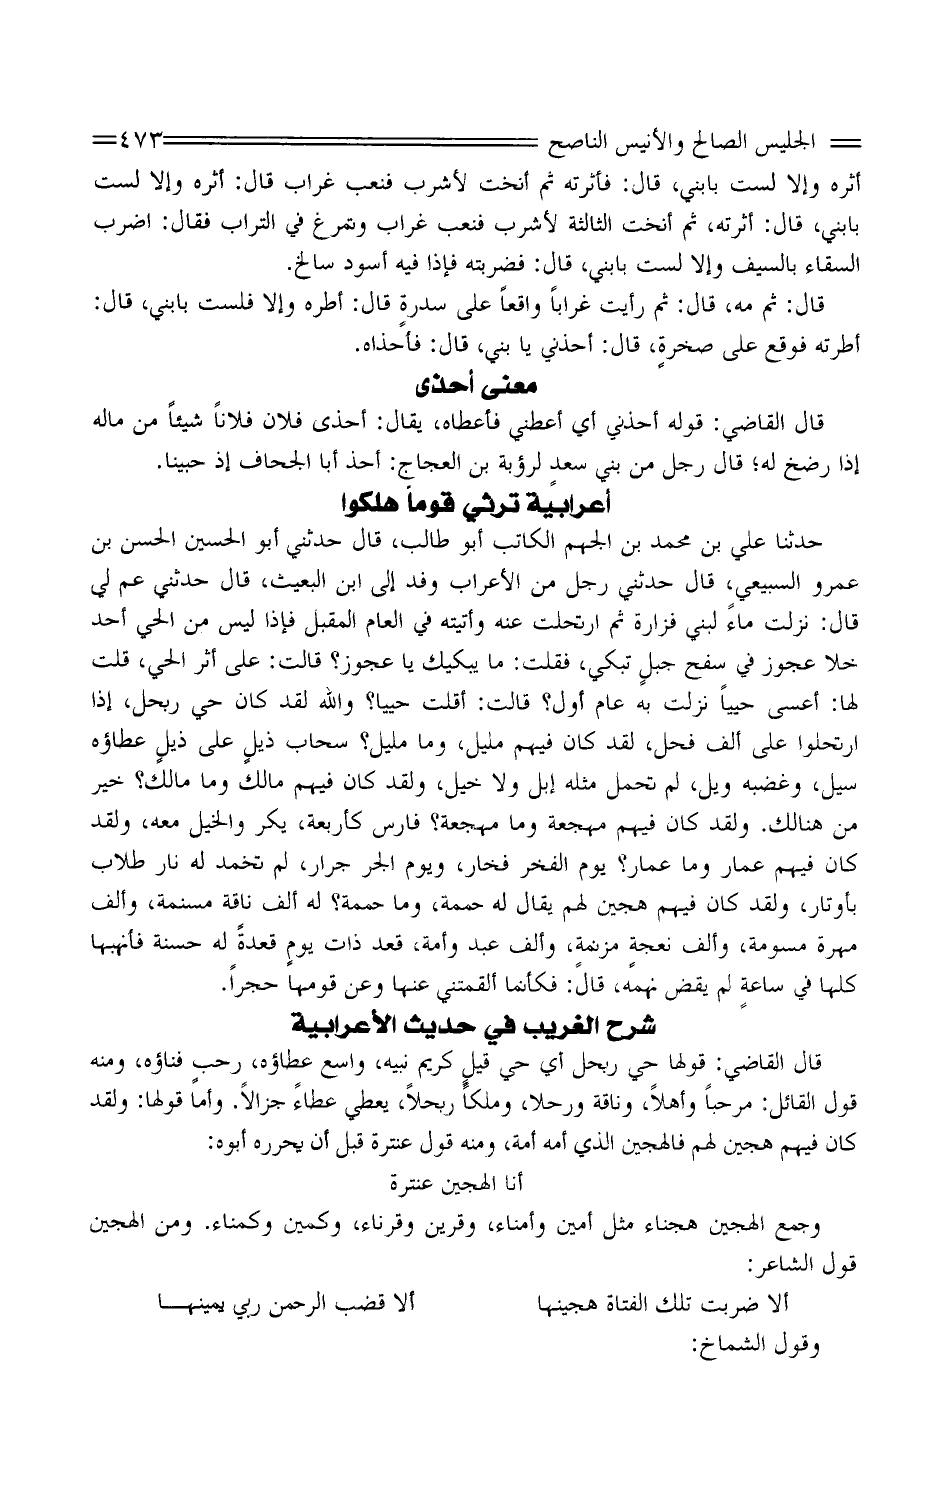 الجليس الصالح والأنيس الناصح ٤٧٣
أثره وإلا لست بابني، قال: فأثرته ثم أنخت لأشرب فنعب غراب قال: أثره وإلا لست
بابني، قال: أثرته، ثم أنخت الثالثة لأشرب فنعب غراب وتمرغ في التراب فقال: اضرب
السقاء بالسيف وإلا لست بابني، قال: فضربته فإذا فيه أسود سالخ.
قال: ثم مه، قال: ثم رأيت غراباً واقعاً على سدرةٍ قال: أطره وإلا فلست بابني، قال:
أطرته فوقع على صخرةٍ، قال: أحذني يا بني، قال: فأحذاه.
معنى أحذى
قال القاضي: قوله أحذني أي أعطني فأعطاه، يقال: أحذى فلان فلاناً شيئاً من ماله
إذا رضخ له؛ قال رجل من بني سعدٍ لرؤبة بن العجاج: أحذ أبا الجحاف إذ حبينا.
أعرابية ترثي قوماً هلكوا
حدثنا علي بن محمد بن الجهم الكاتب أبو طالب، قال حدثني أبو الحسين الحسن بن
عمرو السبيعي، قال حدثني رجل من الأعراب وفد إلى ابن البعيث، قال حدثني عم لي
قال: نزلت ماءً لبني فزارة ثم ارتحلت عنه وأتيته في العام المقبل فإذا ليس من الحي أحد
خلا عجوز في سفح جبلٍ تبكي، فقلت: ما يبكيك يا عجوز؟ قالت: على أثر الحي، قلت
لها: أعسى حيياً نزلت به عام أول؟ قالت: أقلت حييا؟ والله لقد كان حي ربحل، إذا
ارتحلوا على ألف فحل، لقد كان فيهم مليل، وما مليل؟ سحاب ذيلٍ على ذيلٍ عطاؤه
سيل، وغضبه ويل، لم تحمل مثله إبل ولا خيل، ولقد كان فيهم مالك وما مالك؟ خير
من هنالك. ولقد كان فيهم مهجعة وما مهجعة؟ فارس كأربعة، يكر والخيل معه، ولقد
كان فيهم عمار وما عمار؟ يوم الفخر فخار، ويوم الجر جرار، لم تخمد له نار طلاب
بأوتار، ولقد كان فيهم هجين لهم يقال له حممة، وما حممة؟ له ألف ناقة مسنمة، وألف
مهرة مسومة، وألف نعجةٍ مزنمةٍ، وألف عبد وأمة، قعد ذات يومٍ قعدةً له حسنة فأنهبها
كلها في ساعةٍ لم يقض نهمه، قال: فكأنما ألقمتني عنها وعن قومها حجراً.
شرح الغريب في حديث الأعرابية
قال القاضي: قولها حي ربحل أي حي قيلٍ كريم نبيه، واسع عطاؤه، رحبٍ فناؤه، ومنه
قول القائل: مرحباً وأهلاً، وناقة ورحلا، وملكاً ربحلاً، يعطي عطاءً جزالاً. وأما قولها: ولقد
كان فيهم هجين لهم فالهجين الذي أمه أمة، ومنه قول عنترة قبل أن يحرره أبوه:
أنا الهجين عنترة
وجمع الهجين هجناء مثل أمين وأمناء، وقرين وقرناء، وكمين وكمناء. ومن الهجين
قول الشاعر:
ألا ضربت تلك الفتاة هجينها ألا قضب الرحمن ربي يمينهـــا
وقول الشماخ: